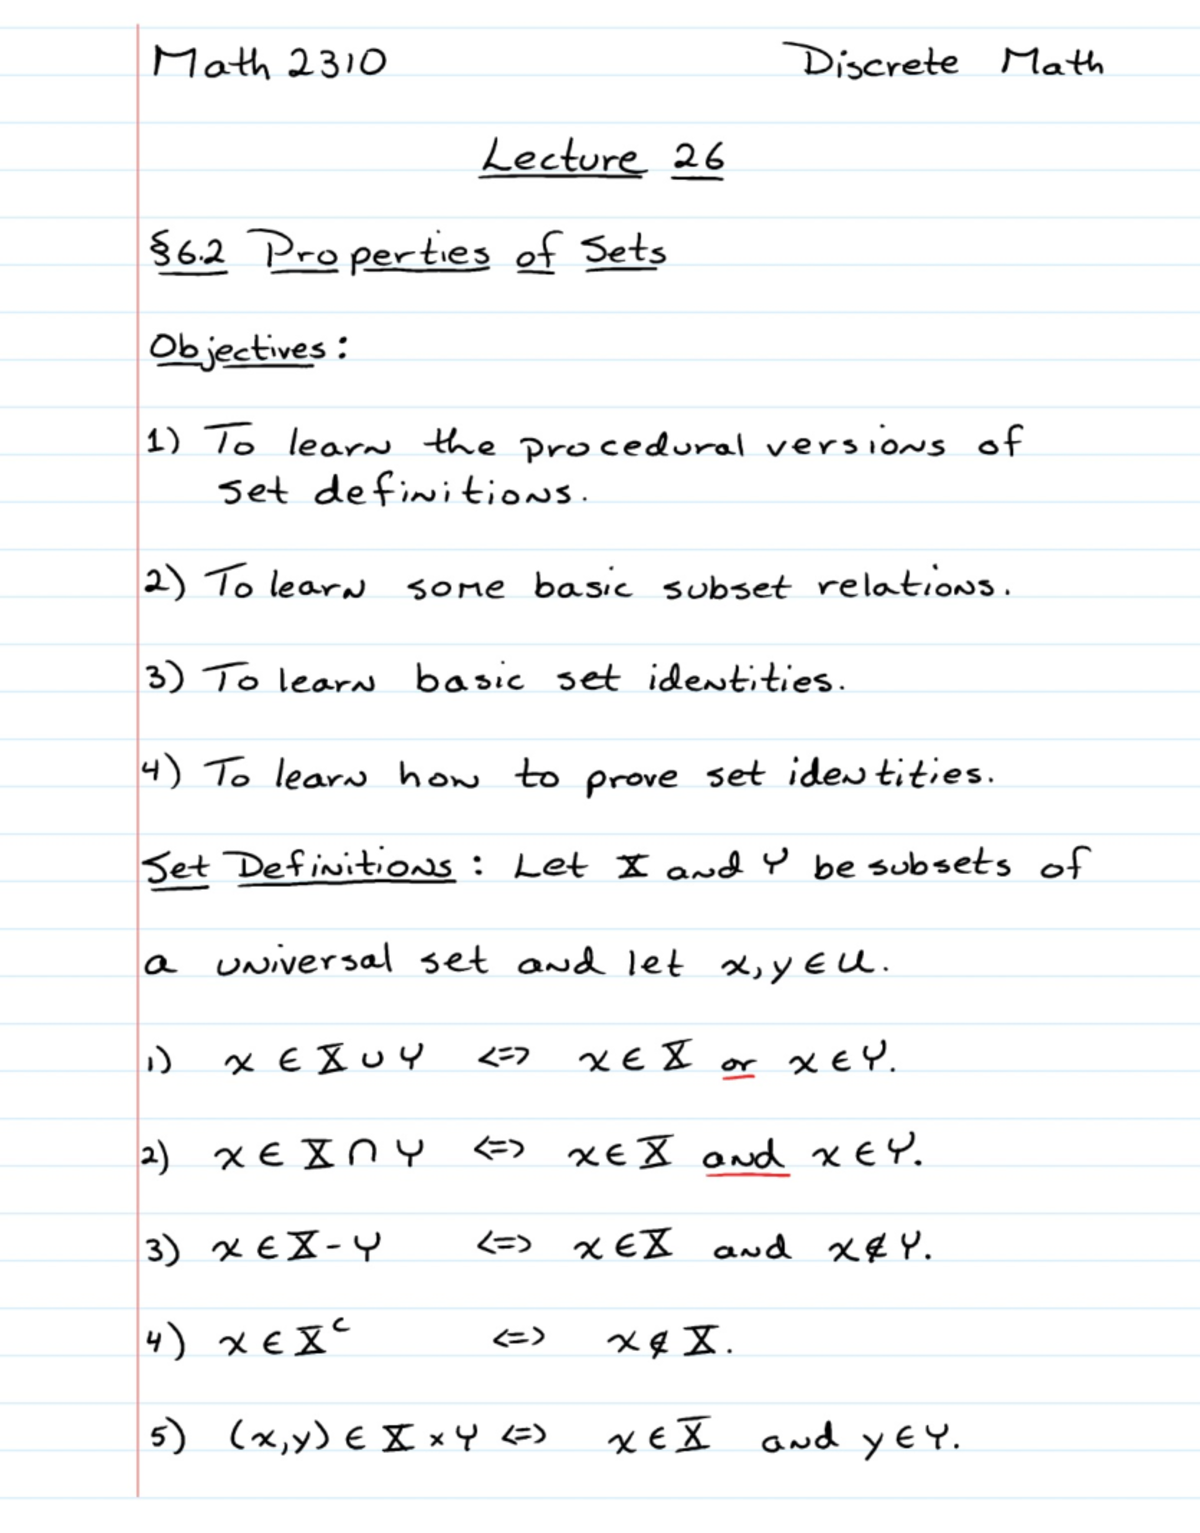 Math 2310 Discrete Math
Lecture 26
§6.2 Properties of Sets
Objectives:
1) To learn the procedural versions of
set definitions.
2) To learn some basic subset relations.
3) To learn basic set identities.
4) To learn how to prove set identities.
Set Definitions: Let X and Y be subsets of
a universal set and let x,y ∈ U.
1) x ∈ X ∪ Y <=> x ∈ X or x ∈ Y.
2) x ∈ X ∩ Y <=> x ∈ X and x ∈ Y.
3) x ∈ X - Y <=> x ∈ X and x ∉ Y.
4) x ∈ Xᶜ <=> x ∉ X.
5) (x,y) ∈ X × Y <=> x ∈ X and y ∈ Y.